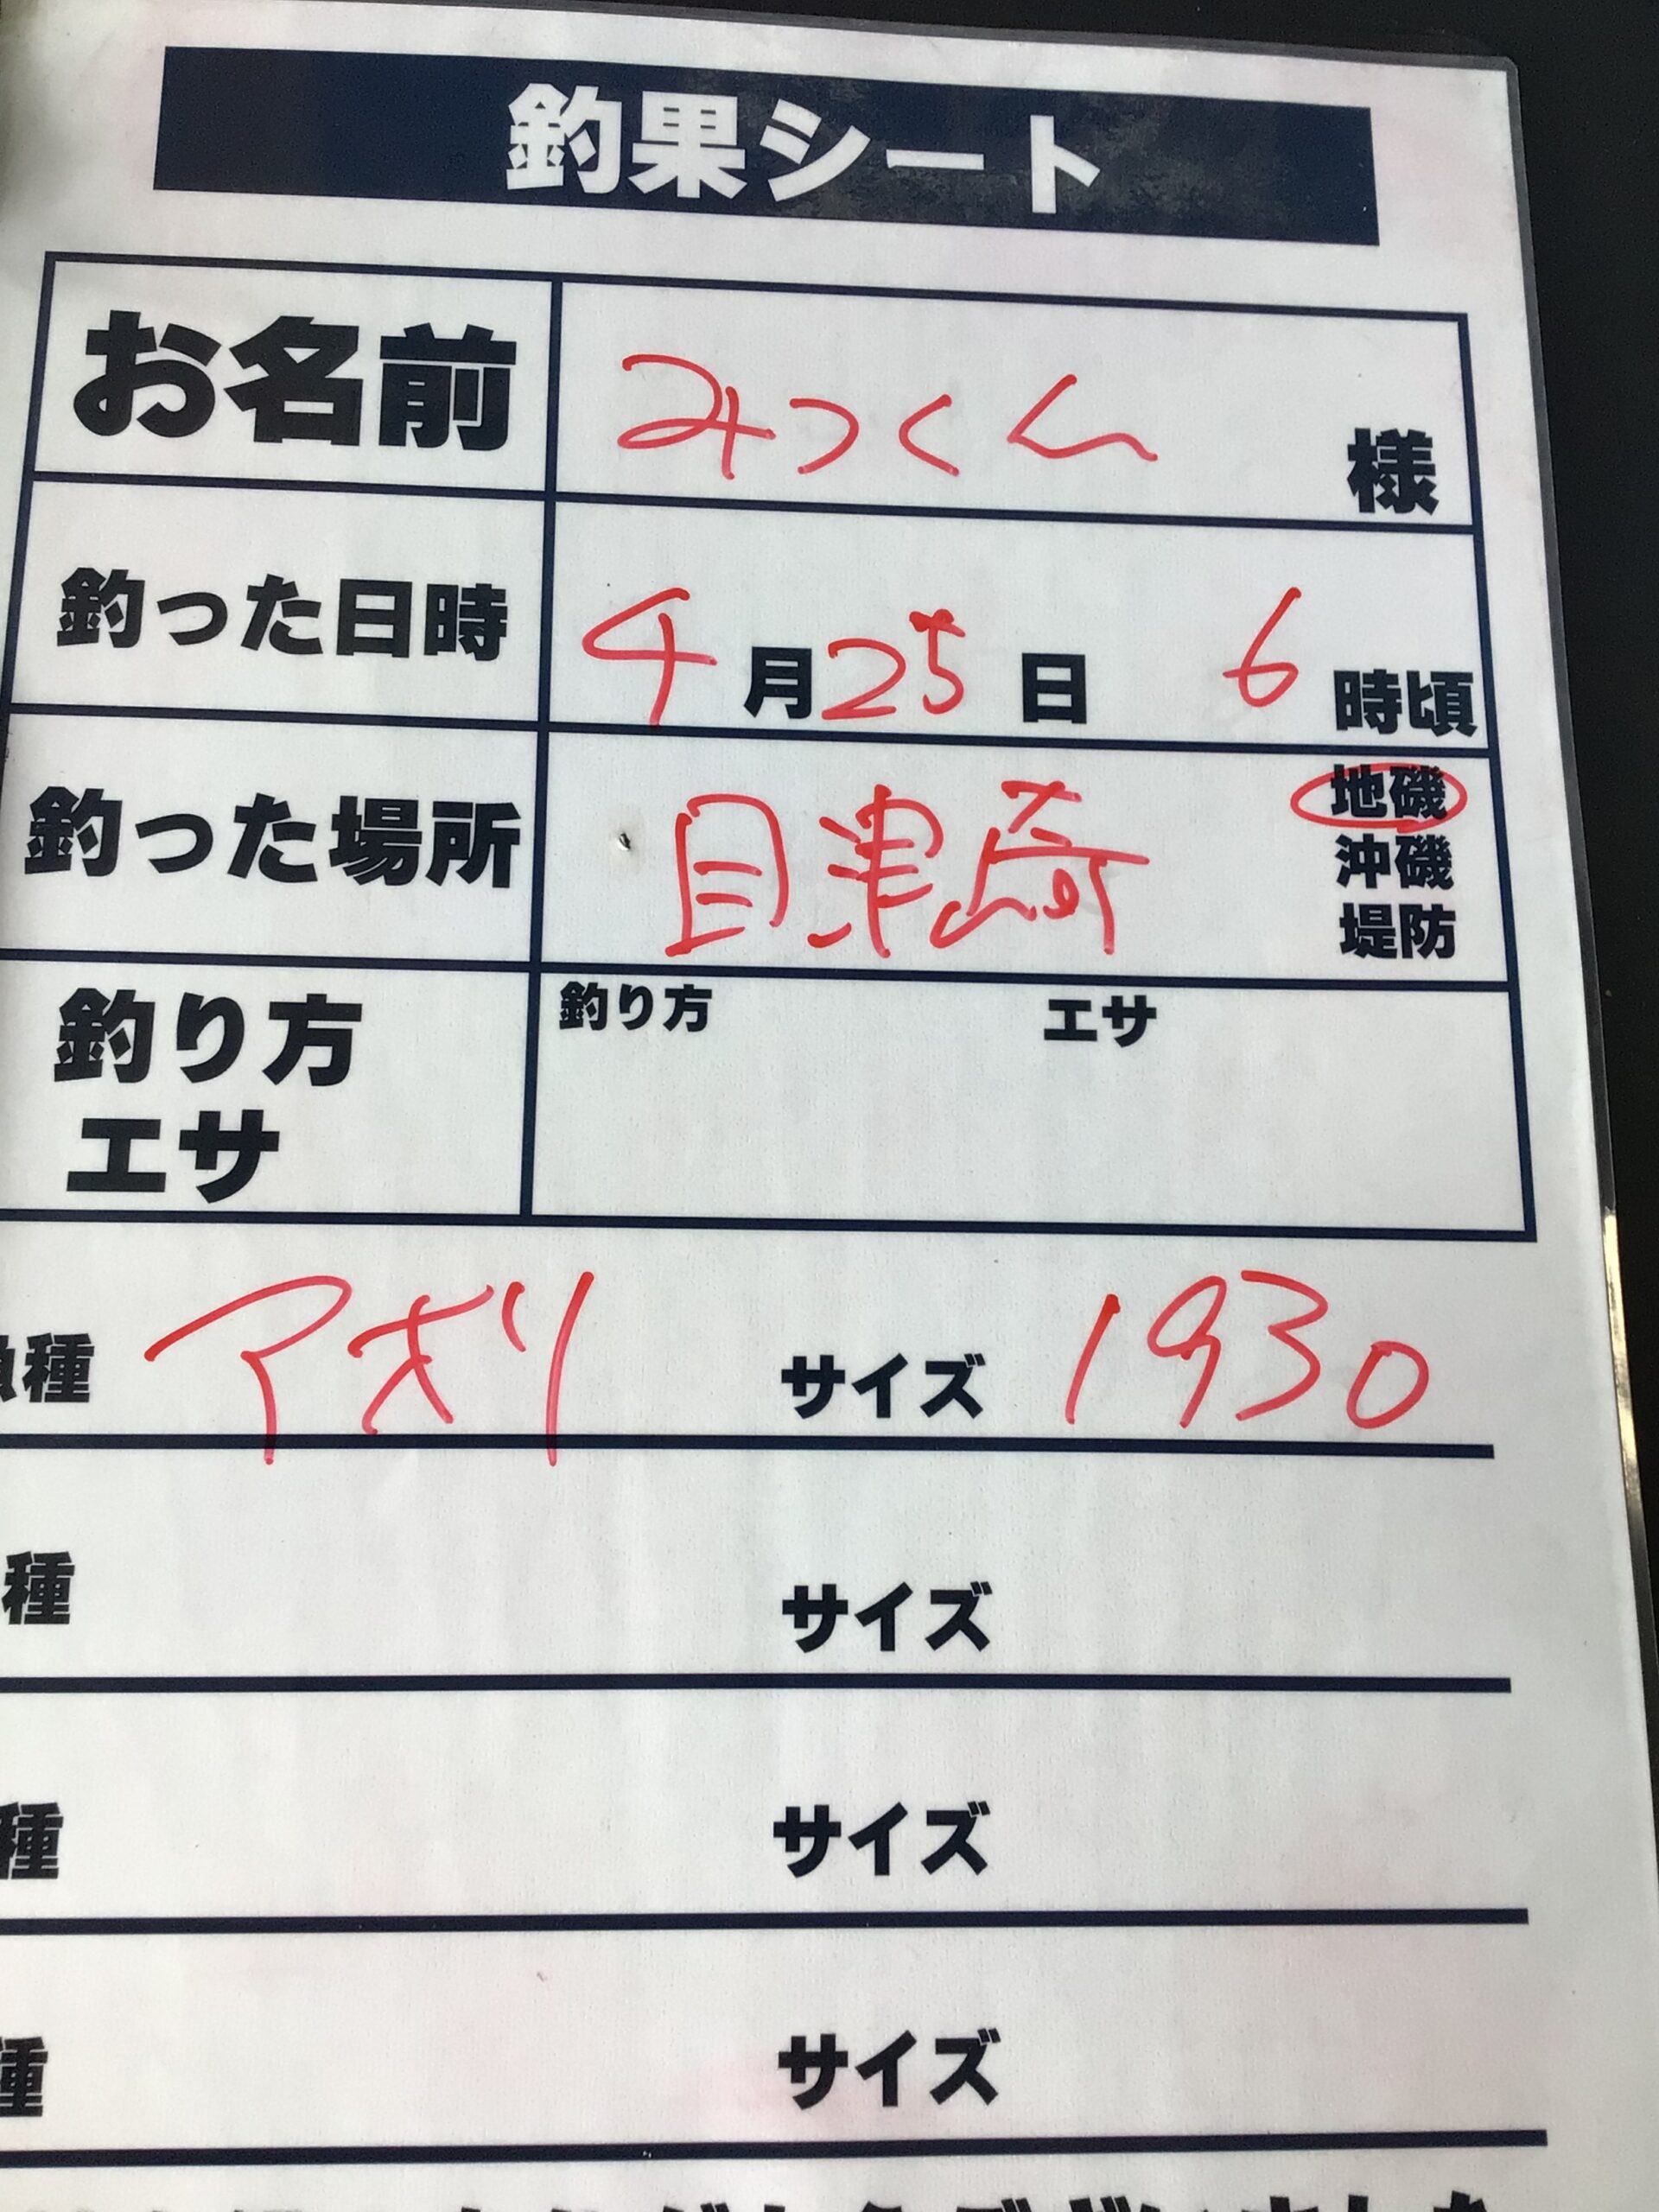 釣果シート
お名前 みつくん 様
釣った日時 4月25日 6時頃
釣った場所 目津崎 地磯
沖磯
堤防
釣り方 エサ
釣り方
エサ
魚種 アオリ サイズ 1930
種 サイズ
種 サイズ
種 サイズ